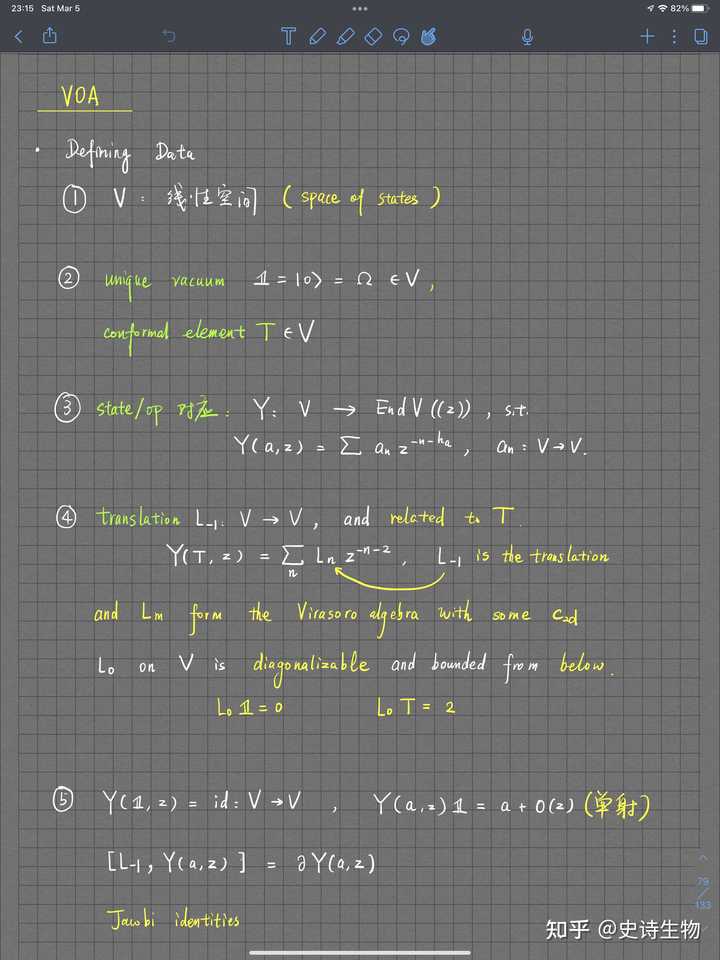 23:15 Sat Mar 5
82%
VOA
• Defining Data
① V : 线性空间 ( space of states )
② unique vacuum 𝟙 = |0> = Ω ∈ V ,
conformal element T ∈ V
③ state/op 对应 : Y : V → End V ((z)) , s.t.
Y(a,z) = Σ aₙ z^{-n-hₐ} , aₙ : V → V.
④ translation L₋₁ : V → V , and related to T.
Y(T, z) = Σₙ Lₙ z^{-n-2} , L₋₁ is the translation
and Lₘ form the Virasoro algebra with some c_{2d}
L₀ on V is diagonalizable and bounded from below.
L₀ 𝟙 = 0 L₀ T = 2
⑤ Y(𝟙, z) = id : V → V , Y(a,z) 𝟙 = a + O(z) (单射)
[L₋₁ , Y(a,z) ] = ∂Y(a,z)
Jacobi identities
79
/
133
知乎 @史诗生物